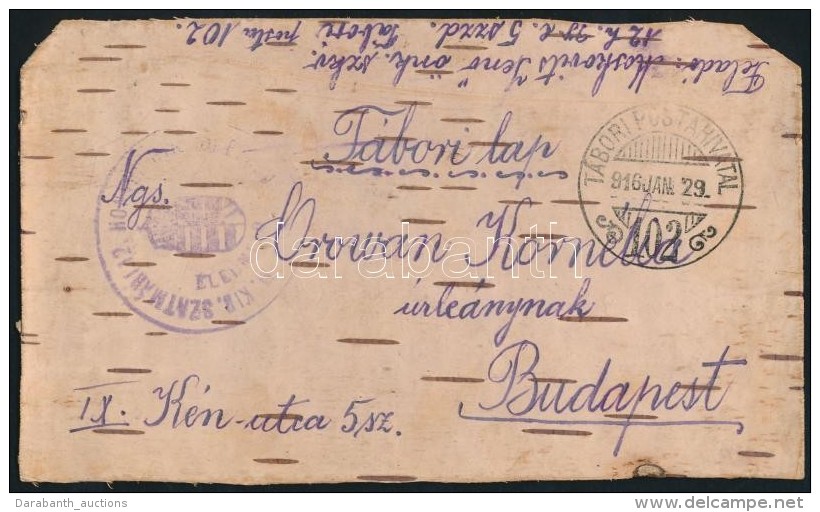 Feladó: Moskovits Jenő önk. szkv.
12 h. gy. e. 5 szzd. Tábori posta 102.
Tábori lap
TÁBORI POSTAHIVATAL
916 JAN. 29.
102
Ngs.
Orován Kornélia
úrleánynak
Budapest
IX. Kén-utca 5 sz.
KIR. SZATMÁRI 12. HON
darabanth
Darabanth_auctions
www.delcampe.net